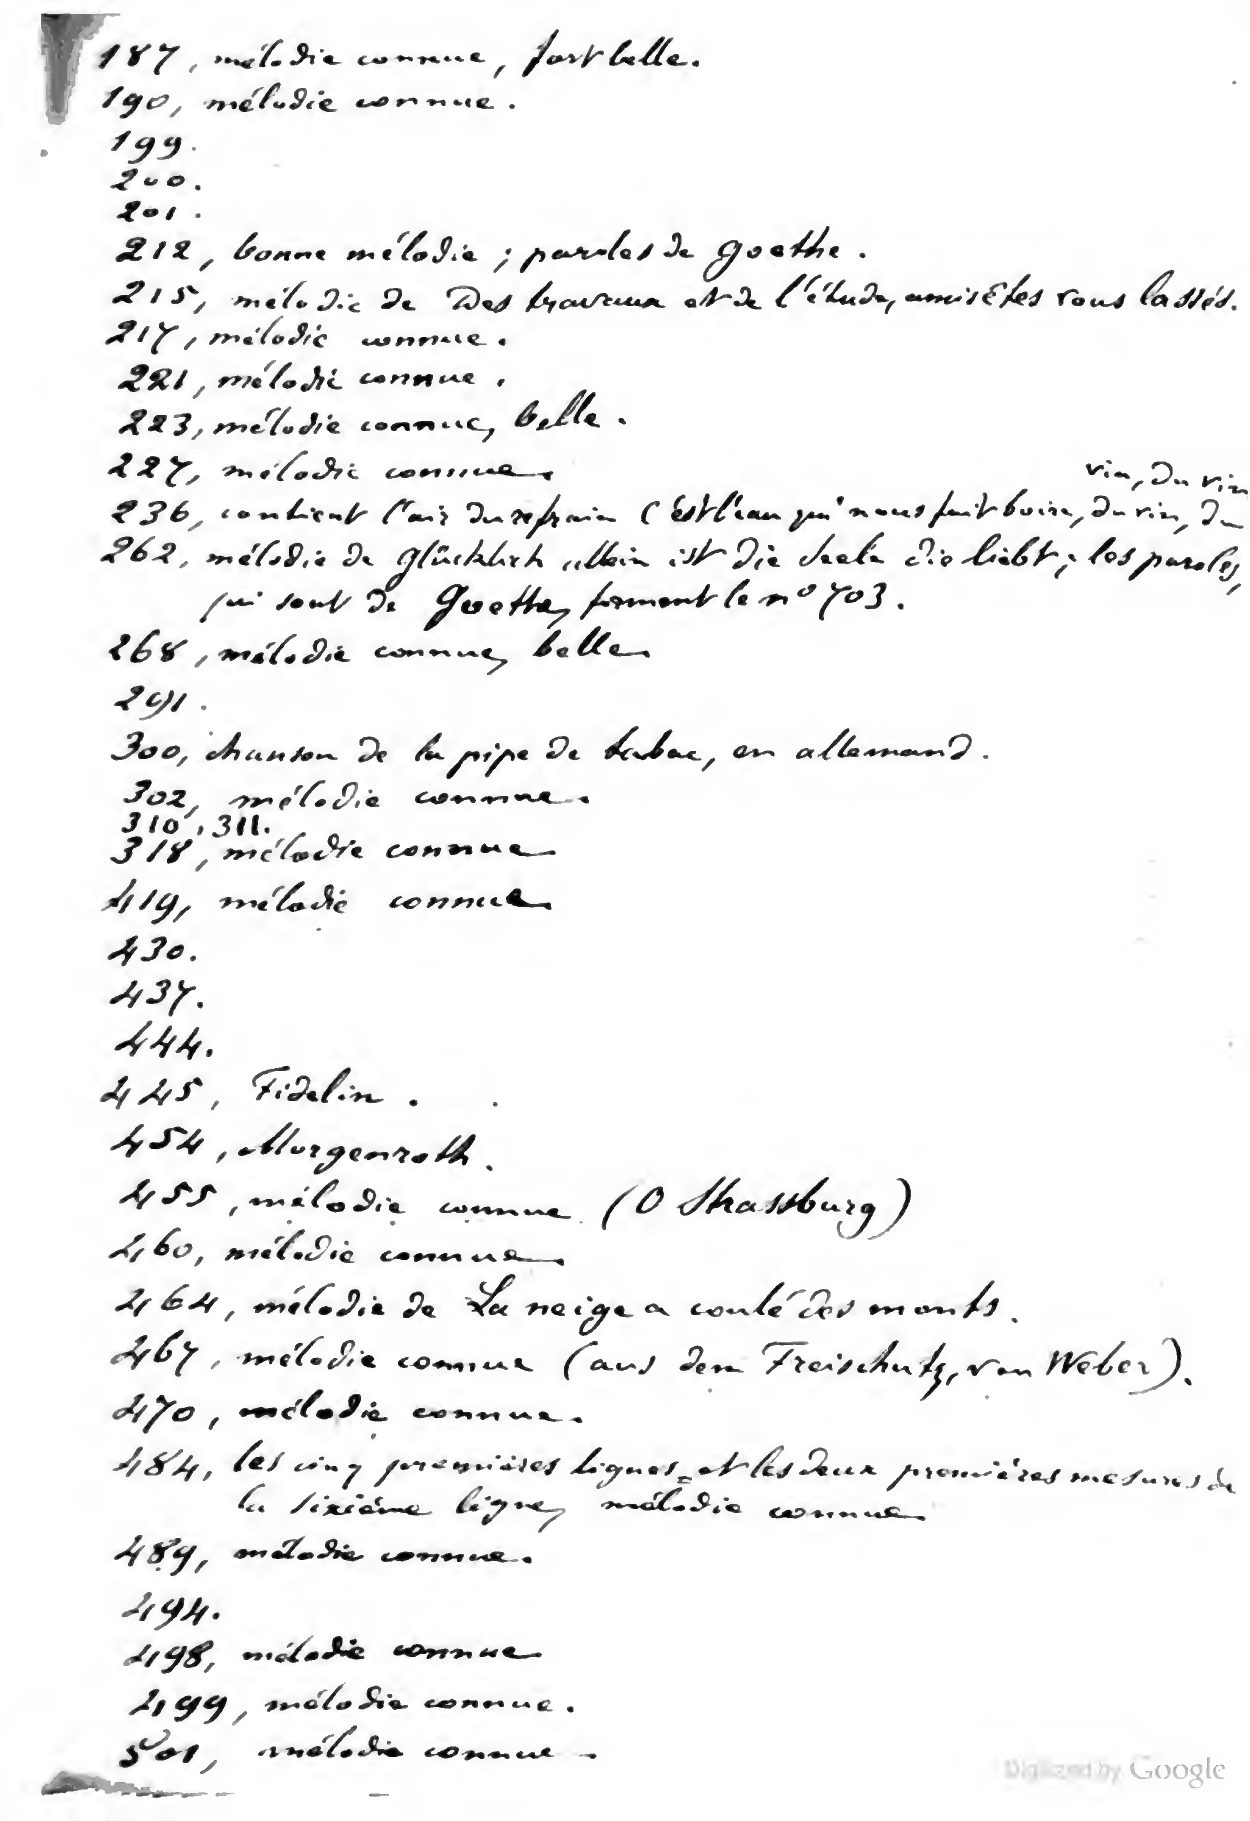 187, mélodie connue, fort belle.
190, mélodie connue.
199.
200.
201.
212, bonne mélodie ; paroles de Goethe.
215, mélodie de Des travaux et de l'étude, amis êtes vous lassés.
217, mélodie connue.
221, mélodie connue.
223, mélodie connue, belle.
227, mélodie connue.
vin, du vin
236, contient l'air du refrain C'est l'eau qui nous fait boire, du vin, du
262, mélodie de Glücklich allein ist die Seele die liebt ; les paroles,
qui sont de Goethe, forment le nº 703.
268, mélodie connue, belle.
291.
300, chanson de la pipe de tabac, en allemand.
302, mélodie connue.
310, 311.
318, mélodie connue.
419, mélodie connue.
430.
437.
444.
445, Fidelin.
454, Morgenroth.
455, mélodie connue (O Strassburg)
460, mélodie connue.
464, mélodie de La neige a coulé des monts.
467, mélodie connue (aus dem Freischutz, von Weber).
470, mélodie connue.
484, les cinq premières lignes, et les deux premières mesures de
la sixième ligne, mélodie connue.
489, mélodie connue.
494.
498, mélodie connue.
499, mélodie connue.
501, mélodie connue.
Digitized by Google